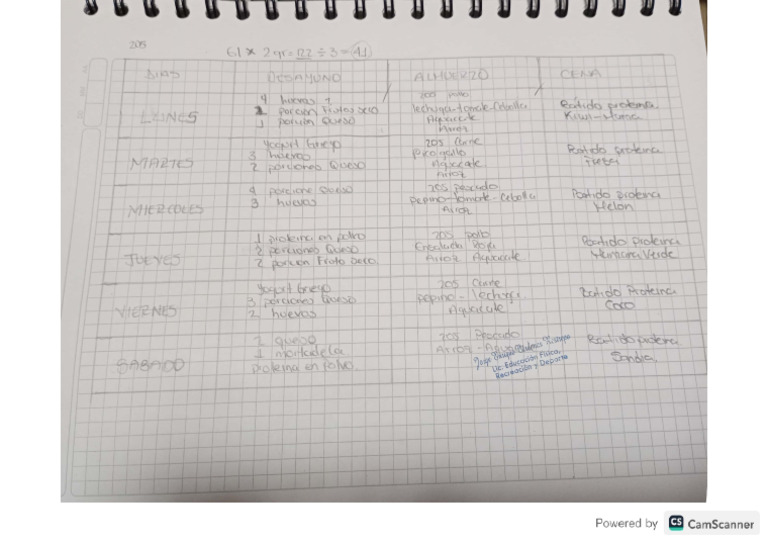 205
61 x 2gr = 122 ÷ 3 = 41
DIAS DESAYUNO ALMUERZO CENA
LUNES
4 huevos
1 porcion Frutos seco
1 porcion Queso
205 pollo
lechuga-tomate-Cebolla
Aguacate
Arroz
Batido proteina
Kiwi-
MARTES
Yogurt Griego
3 huevos
2 porciones Queso
205 Carne
Aguacate
Arroz
Batido proteina
MIERCOLES
4 porcione Queso
3 huevos
205 pescado
Pepino-tomate-Cebolla
Arroz
Batido proteina
Melon
JUEVES
1 proteina en polvo
2 porciones Queso
2 porcion Fruto seco
205 pollo
Ensalada Roja
Arroz Aguacate
Batido Proteina
Manzana Verde
VIERNES
Yogurt Griego
3 porciones Queso
2 huevos
205 Carne
pepino - lechuga
Aguacate
Batido Proteina
Coco
SABADO
2 queso
1 mortadela
proteina en polvo.
205 Pescado
Arroz -
Lic. Educación Física,
Recreación y Deporte
Batido proteina
Sandia
Powered by CS CamScanner